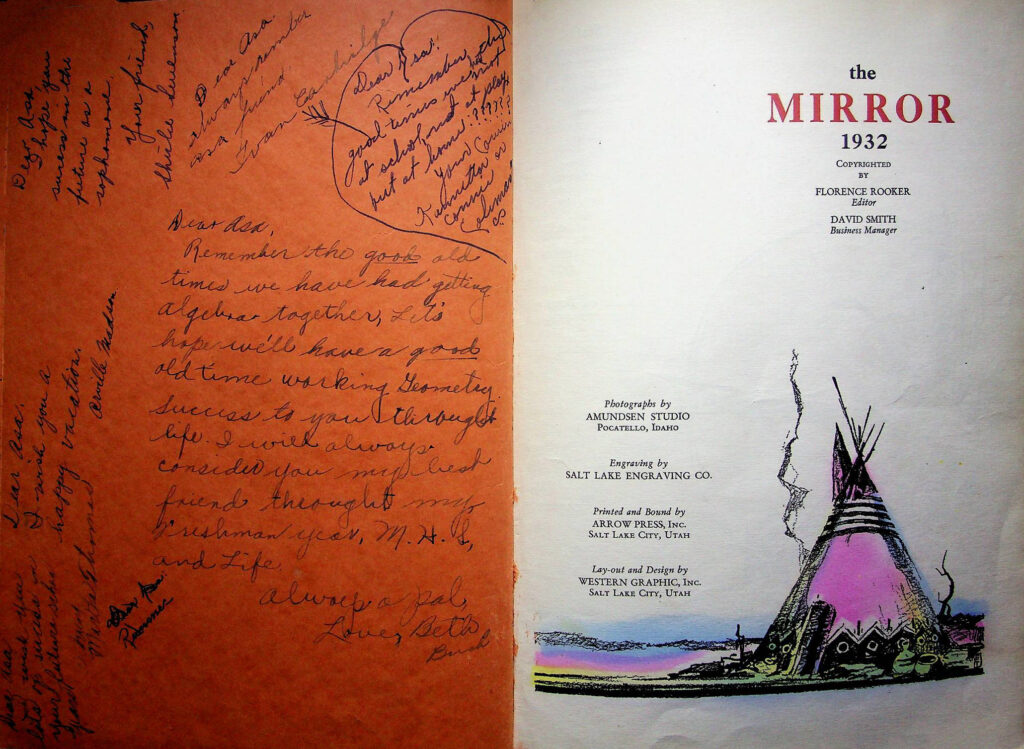 Dear Asa,
I hope you
success in the
future as a
sophomore.
Your friend,
Dear Asa.
always rember
as a friend.
Dear Asa:
Remember, the
good times we
at school, not at play,
but at home!?????
Your Cousin
or
Connie
Coleman
Dear Asa,
Remember the good old
times we have had getting
algebra together, Let's
hope we'll have a good
old time working Geometry.
Success to you throught
life. I will always
consider you my best
friend throught my
Freshman year, M. H. S,
and Life.
Always a pal,
Love, Beth
Bush
Dear Asa.
I wish you a
happy vacation.
Orville Madsen
Dear Asa
I wish you
lots of success in
your future school
years
the
MIRROR
1932
Copyrighted
by
FLORENCE ROOKER
Editor
DAVID SMITH
Business Manager
Photographs by
AMUNDSEN STUDIO
Pocatello, Idaho
Engraving by
SALT LAKE ENGRAVING CO.
Printed and Bound by
ARROW PRESS, Inc.
Salt Lake City, Utah
Lay-out and Design by
WESTERN GRAPHIC, Inc.
Salt Lake City, Utah